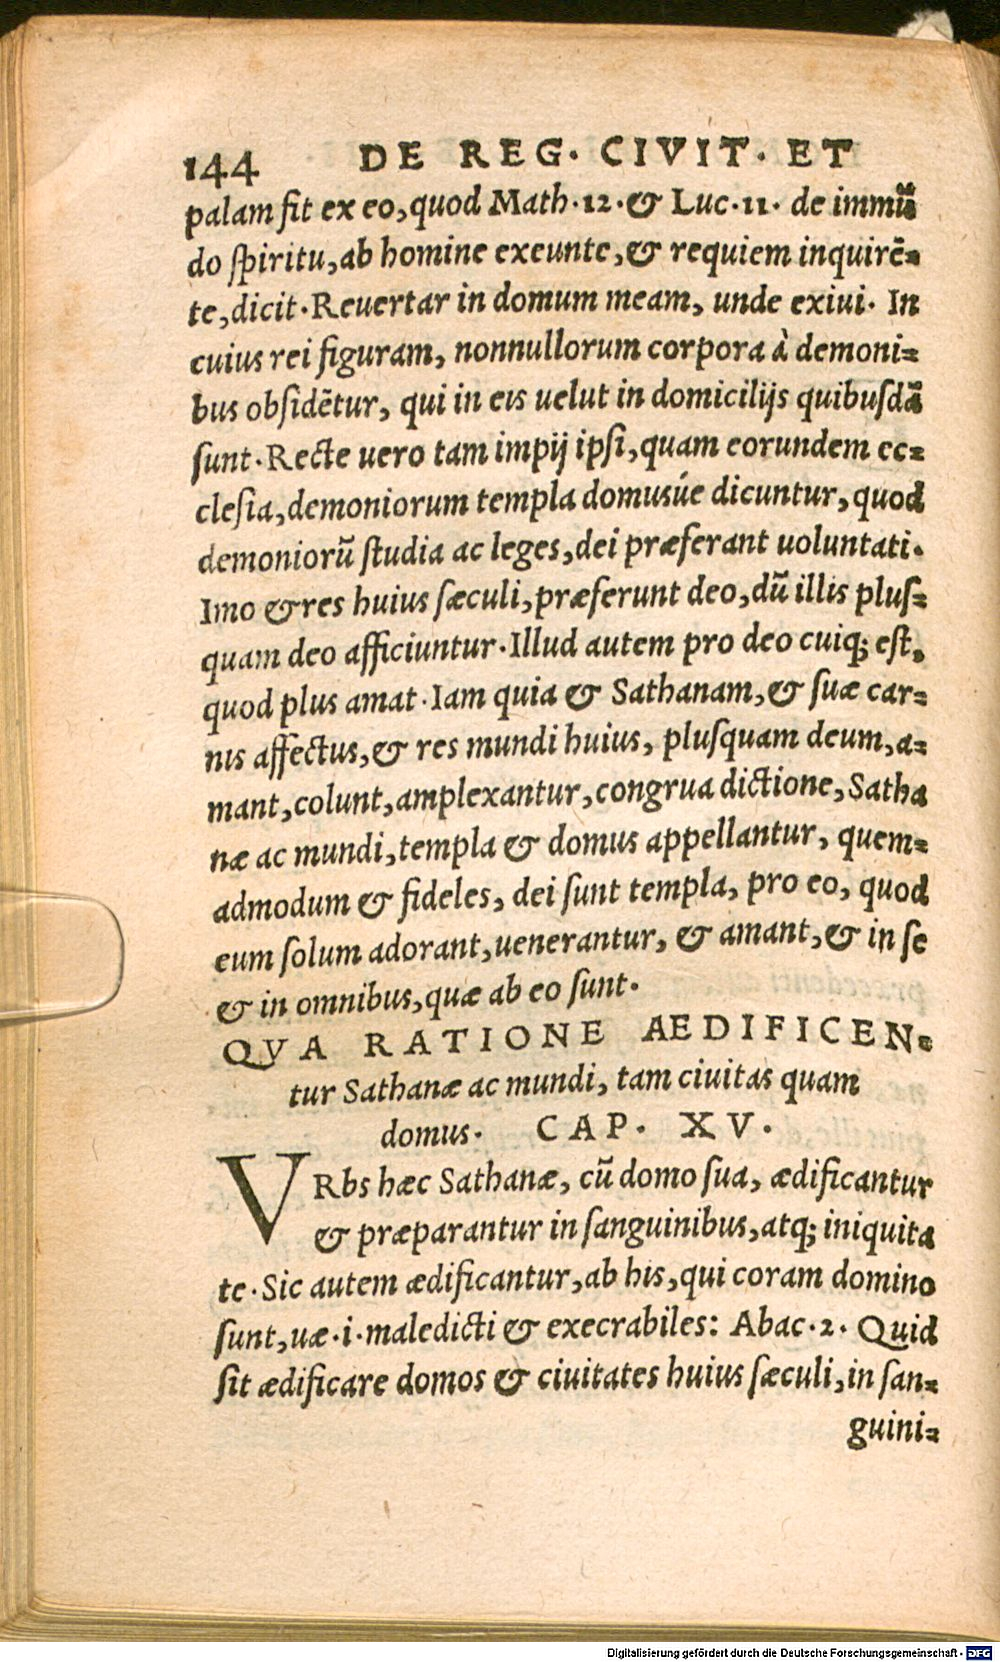 144 DE REG. CIVIT. ET
palam fit ex eo, quod Math. 12. & Luc. 11. de immũ
do ſpiritu, ab homine exeunte, & requiem inquirẽ=
te, dicit. Reuertar in domum meam, unde exiui. In
cuius rei figuram, nonnullorum corpora à demoni=
bus obſidẽtur, qui in eis uelut in domicilijs quibuſdã
ſunt. Recte uero tam impij ipſi, quam eorundem ec=
cleſia, demoniorum templa domusúe dicuntur, quod
demoniorũ ſtudia ac leges, dei præferant uoluntati.
Imo & res huius ſæculi, præferunt deo, dũ illis pluſ=
quam deo afficiuntur. Illud autem pro deo cuiq; eſt,
quod plus amat. Iam quia & Sathanam, & ſuæ car=
nis affectus, & res mundi huius, pluſquam deum, a=
mant, colunt, amplexantur, congrua dictione, Satha
næ ac mundi, templa & domus appellantur, quem=
admodum & fideles, dei ſunt templa, pro eo, quod
eum ſolum adorant, uenerantur, & amant, & in ſe
& in omnibus, quæ ab eo ſunt.
QVA RATIONE AEDIFICEN=
tur Sathanæ ac mundi, tam ciuitas quam
domus. CAP. XV.
VRbs hæc Sathanæ, cũ domo ſua, ædificantur
& præparantur in ſanguinibus, atq; iniquita
te. Sic autem ædificantur, ab his, qui coram domino
ſunt, uæ. i. maledicti & execrabiles: Abac. 2. Quid
ſit ædificare domos & ciuitates huius ſæculi, in ſan=
guini=
Digitalisierung gefördert durch die Deutsche Forschungsgemeinschaft - DFG